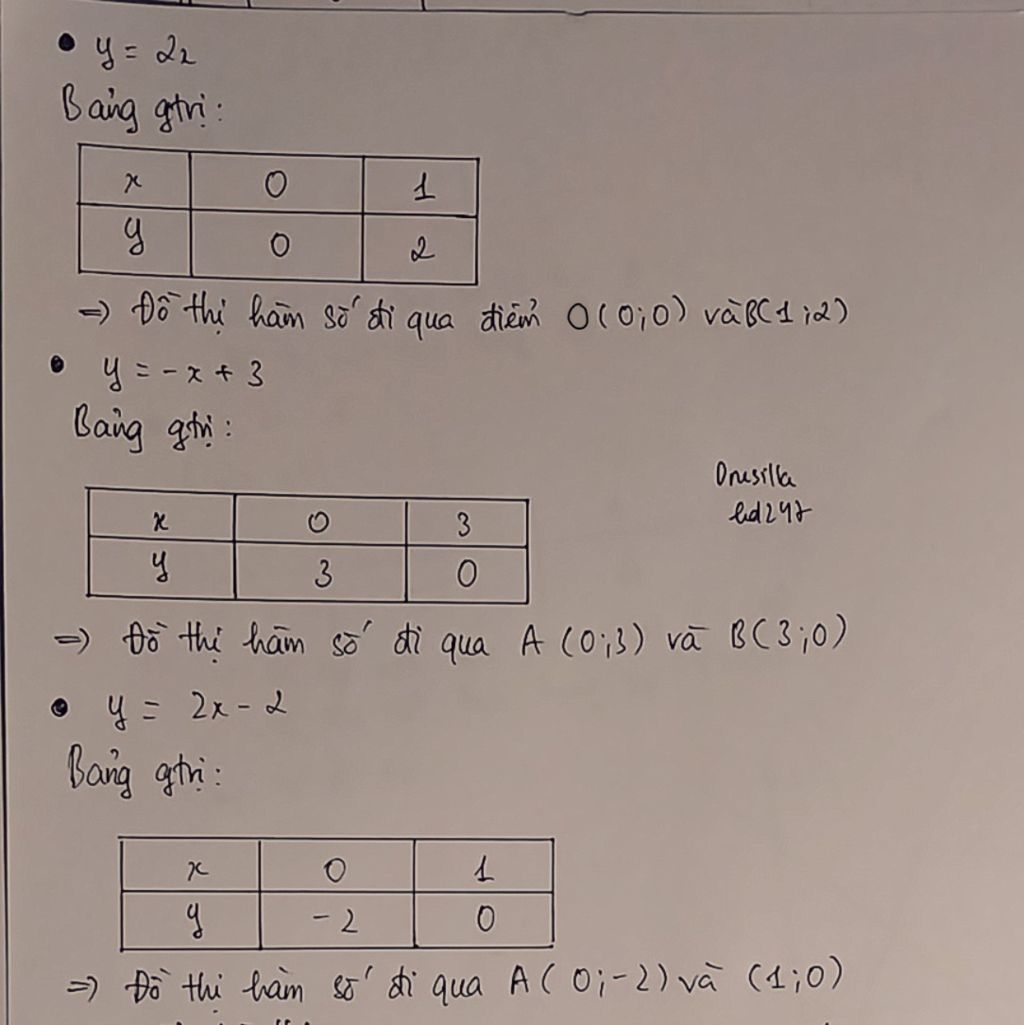 • y = 2x
Bảng gtrị:
x 0 1
y 0 2
=> Đồ thị hàm số đi qua điểm O(0;0) và B(1;2)
• y = -x + 3
Bảng gtrị:
Drusilla
x 0 3
y 3 0
=> Đồ thị hàm số đi qua A (0;3) và B(3;0)
• y = 2x - 2
Bảng gtrị:
x 0 1
y -2 0
=> Đồ thị hàm số đi qua A( 0;-2) và (1;0)